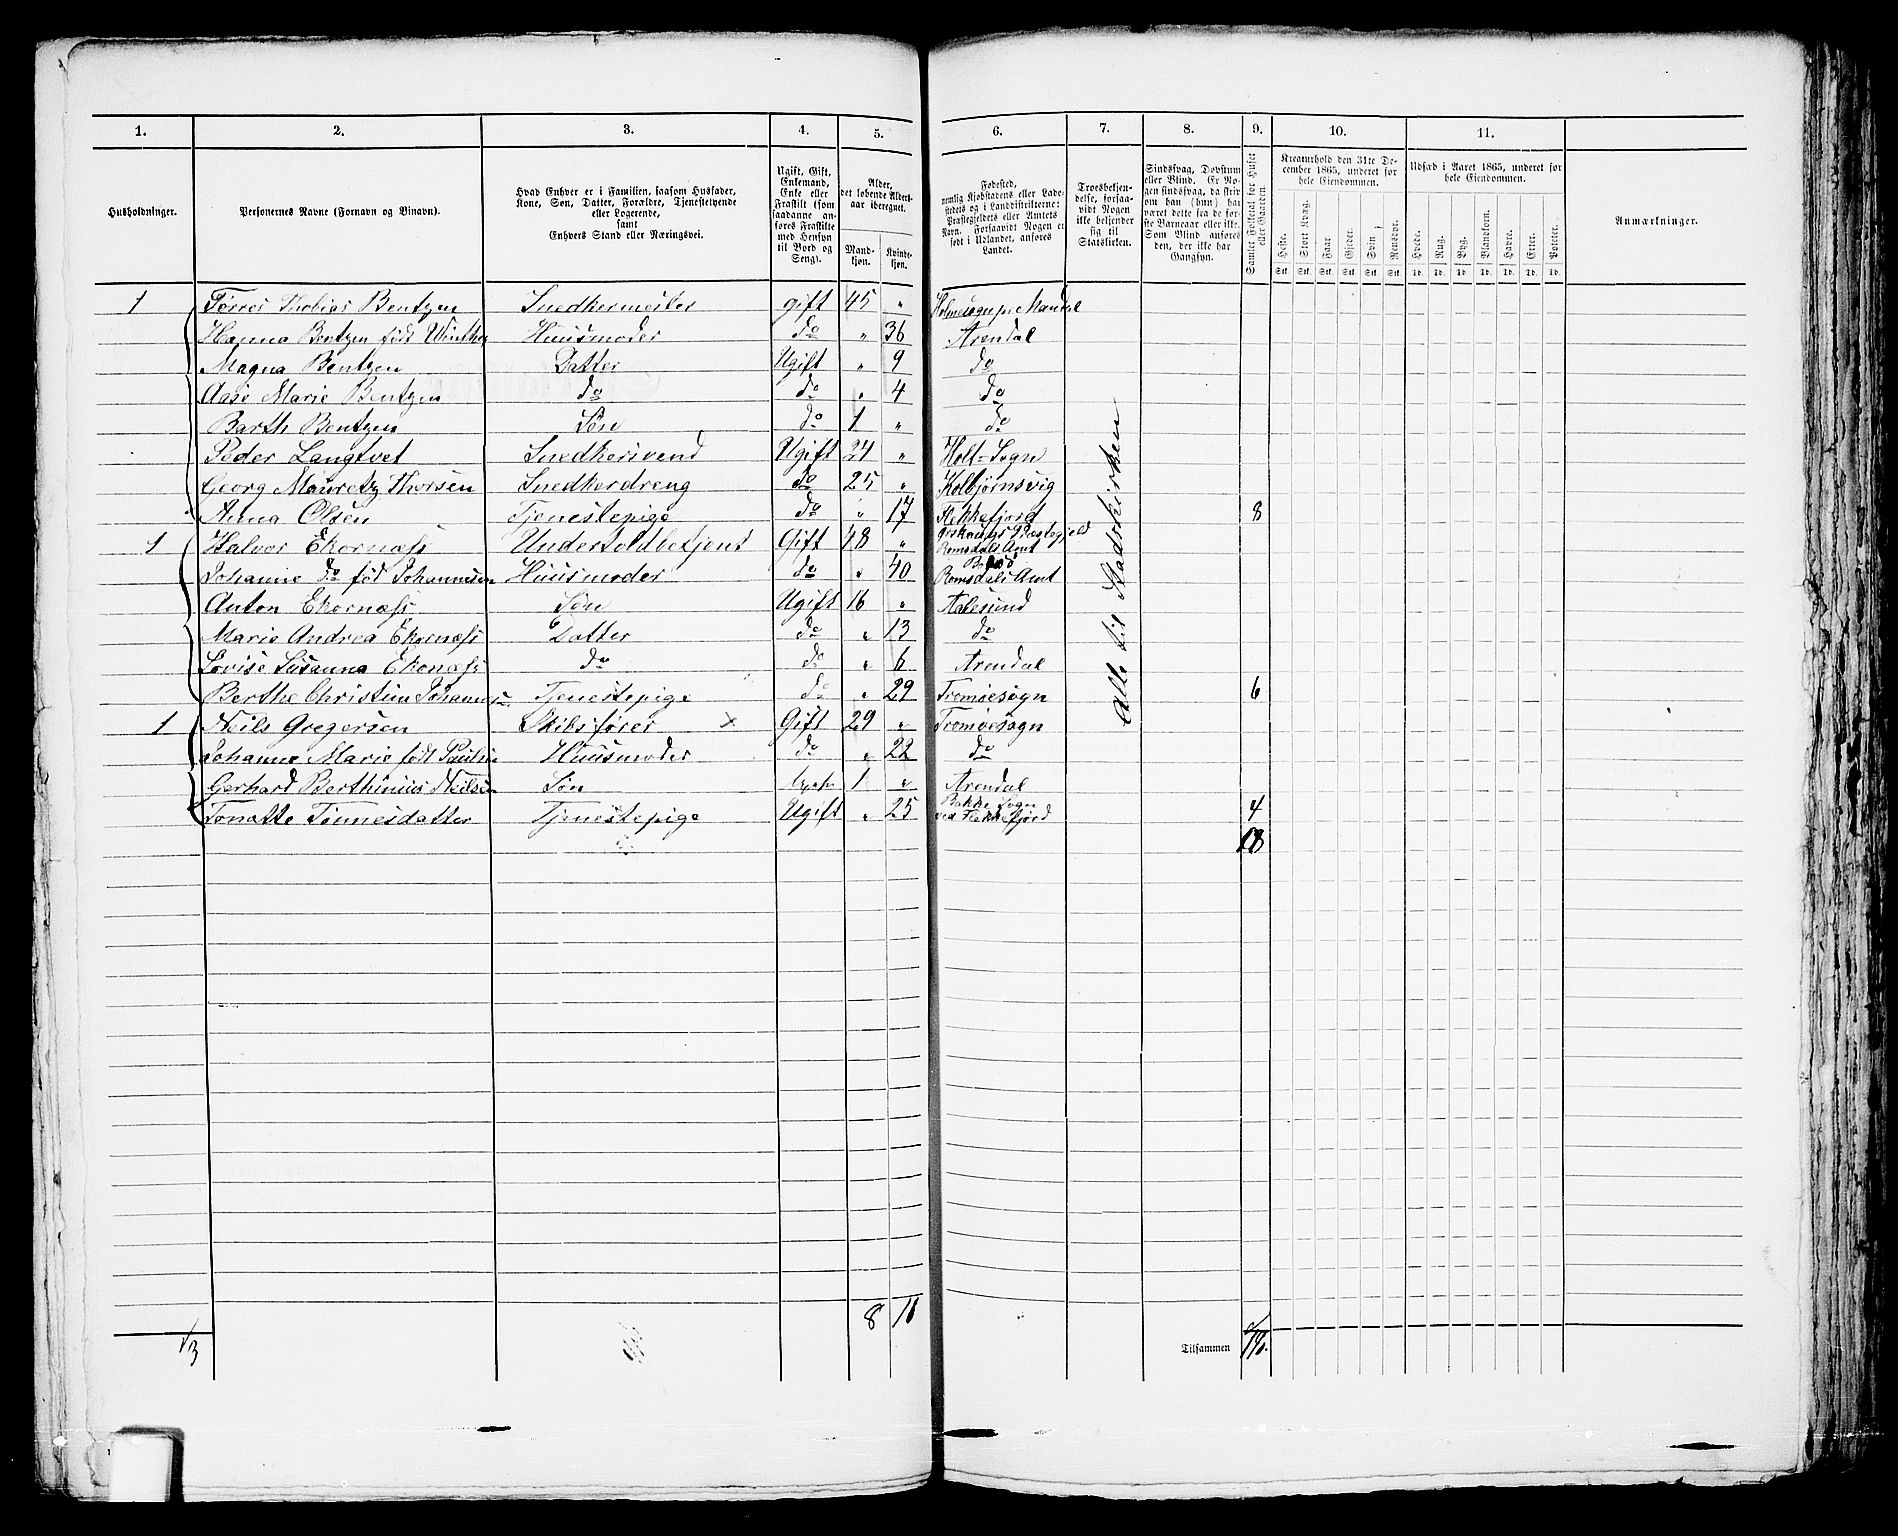 1. 2. 3. 4. 5. 6. 7. 8. 9. 10. 11.
Husholdninger.
Personernes Navne (Fornavn og Binavn).
Hvad Enhver er i Familien, saasom Husfader,
Kone, Søn, Datter, Forældre, Tjenestetyende
eller Logerende,
samt
Enhvers Stand eller Næringsvei.
Ugift, Gift,
Enkemand,
Enke eller
Fraskilt (som
saadanne an-
føres Fraskilte
med Hensyn
til Bord og
Seng).
Alder,
det løbende Alders-
aar iberegnet.
Mand-
kjøn.
Kvinde-
kjøn.
Fødested,
nemlig Kjøbstadens eller Lade-
stedets og i Landdistrikterne:
Præstegjeldets eller Amtets
Navn. Forsaavidt Nogen er
født i Udlandet, anføres
Landet.
Troesbekjen-
delse, forsaa-
vidt Nogen
ikke bekjender
sig til
Statskirken.
Sindssvag, Døvstum
eller Blind. Er No-
gen sindssvag, da skriv
om han (hun) har
været dette fra de før-
ste Barneaar eller ikke.
Som Blind anføres
den, der ikke har
Gangsyn.
Samlet Folketal for Huset
eller Gaarden.
Kreaturhold den 31te De-
cember 1865, underet for
hele Eiendommen.
Heste. Stort Kvæg. Faar. Gjeder. Sviin. Rensdyr.
Stk. Stk. Stk. Stk. Stk. Stk.
Udsæd i Aaret 1865, underet for
hele Eiendommen.
Hvede. Rug. Byg. Blandkorn. Havre. Erter. Poteter.
Td. Td. Td. Td. Td. Td. Td.
Anmærkninger.
1 Tørres Thobias Bentzen Snedkermester gift 45 " Mandal
Hanna Bentzen født Winther Huusmoder do " 36 Arendal
Magna Bentzen Datter Ugift " 9 do
Aase Marie Bentzen do do " 4 do
Barth Bentzen Søn do 1 " do
Peder Langtvet Snedkersvend Ugift 24 " Holt-Sogn
Georg Mauretz Thorsen Snedkerdreng do 25 " Kolbjørnsvig
Anna Olsen Tjenestepige do " 17 Flekkefjord 8
1 Halvor Ekornæss Undertoldbetjent Gift 48 " Ørskougs Præstegjeld
Romsdals Amt
Johanne do fød Johannesen Huusmoder do " 40 Romsdals Amt
Anton Ekornæss Søn Ugift 16 " Aalesund
Marie Andrea Ekornæss Datter do " 13 do
Lovise Susanna Ekornæss do do " 6 Arendal
Berthe Christine Johannes Tjenestepige do " 29 Tromøesogn 6
1 Neils Gregersen Skibsfører x Gift 29 " Tromøesogn
Johanne Marie født Paulsen Huusmoder do " 22 do
Gerhard Berthinius Neilsen Søn Ugift 1 " Arendal
Tonatte Tønnesdatter Tjenestepige Ugift " 25 Bakke Sogn
ved Flekkefjord 4
18
Alle til Stadskirken
8 10
Tilsammen